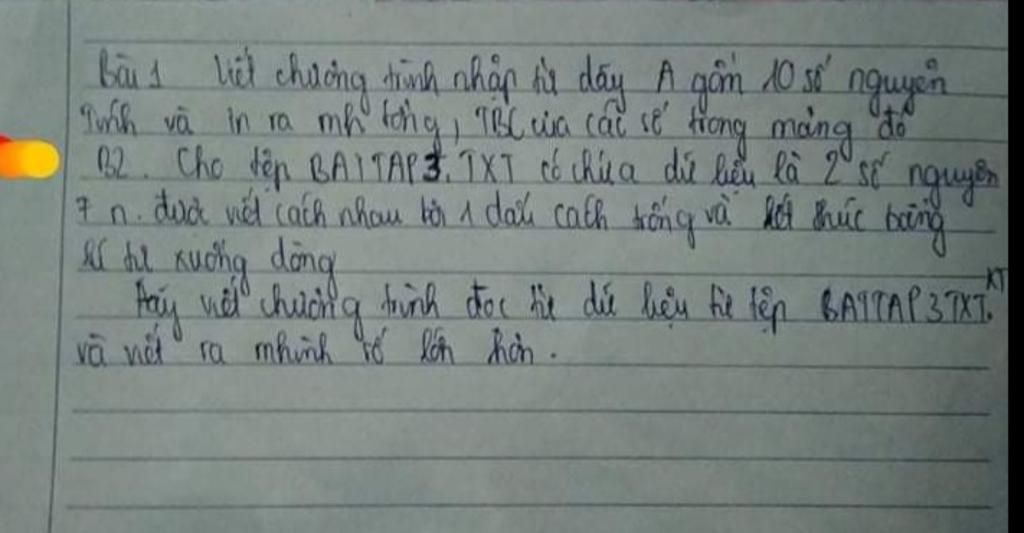 Bài 1 Viết chương trình nhập từ dãy A gồm 10 số nguyên
Tính và in ra mh tổng, TBC của các số trong mảng đó
B2. Cho tệp BAITAP3.TXT có chứa dữ liệu là 2 số nguyên
7 n. được viết cách nhau bởi 1 dấu cách trống và kết thúc bằng
kí tự xuống dòng
Hãy viết chương trình đọc từ dữ liệu từ tệp BAITAP3TXT.
và viết ra mhình số lớn hơn.